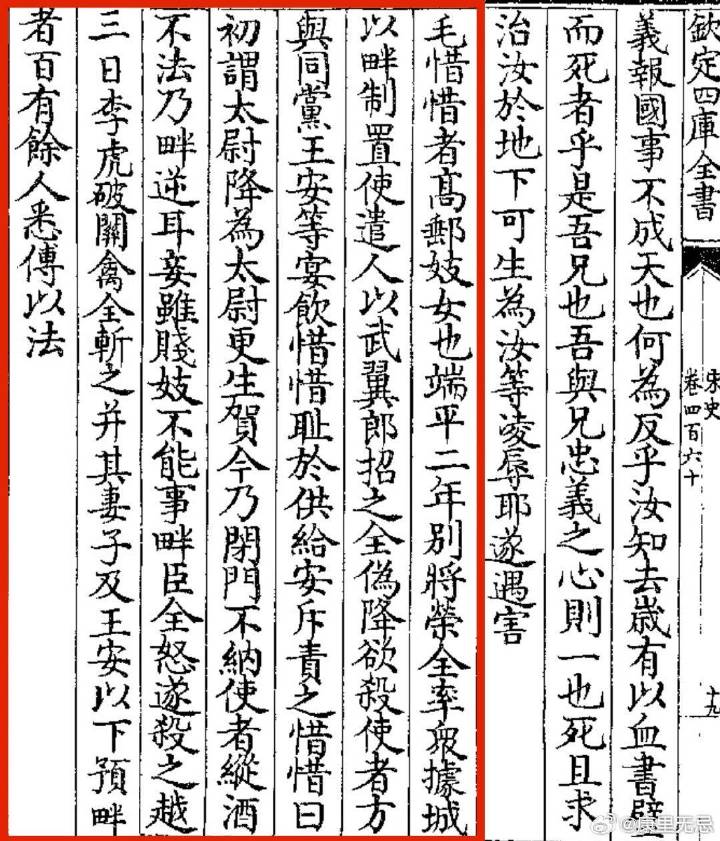 欽定四庫全書
宋史
卷四百六十
十九
義報國事不成天也何為反乎汝知去歲有以血書壁
而死者乎是吾兄也吾與兄忠義之心則一也死且求
治汝於地下可生為汝等凌辱耶遂遇害
毛惜惜者髙郵妓女也端平二年别將榮全率衆據城
以畔制置使遣人以武翼郎招之全偽降欲殺使者方
與同黨王安等宴飲惜惜耻於供給安斥責之惜惜曰
初謂太尉降為太尉更生賀今乃閉門不納使者縱酒
不法乃畔逆耳妾雖賤妓不能事畔臣全怒遂殺之越
三日李虎破關禽全斬之并其妻子及王安以下預畔
者百有餘人悉傅以法
@康里无忌